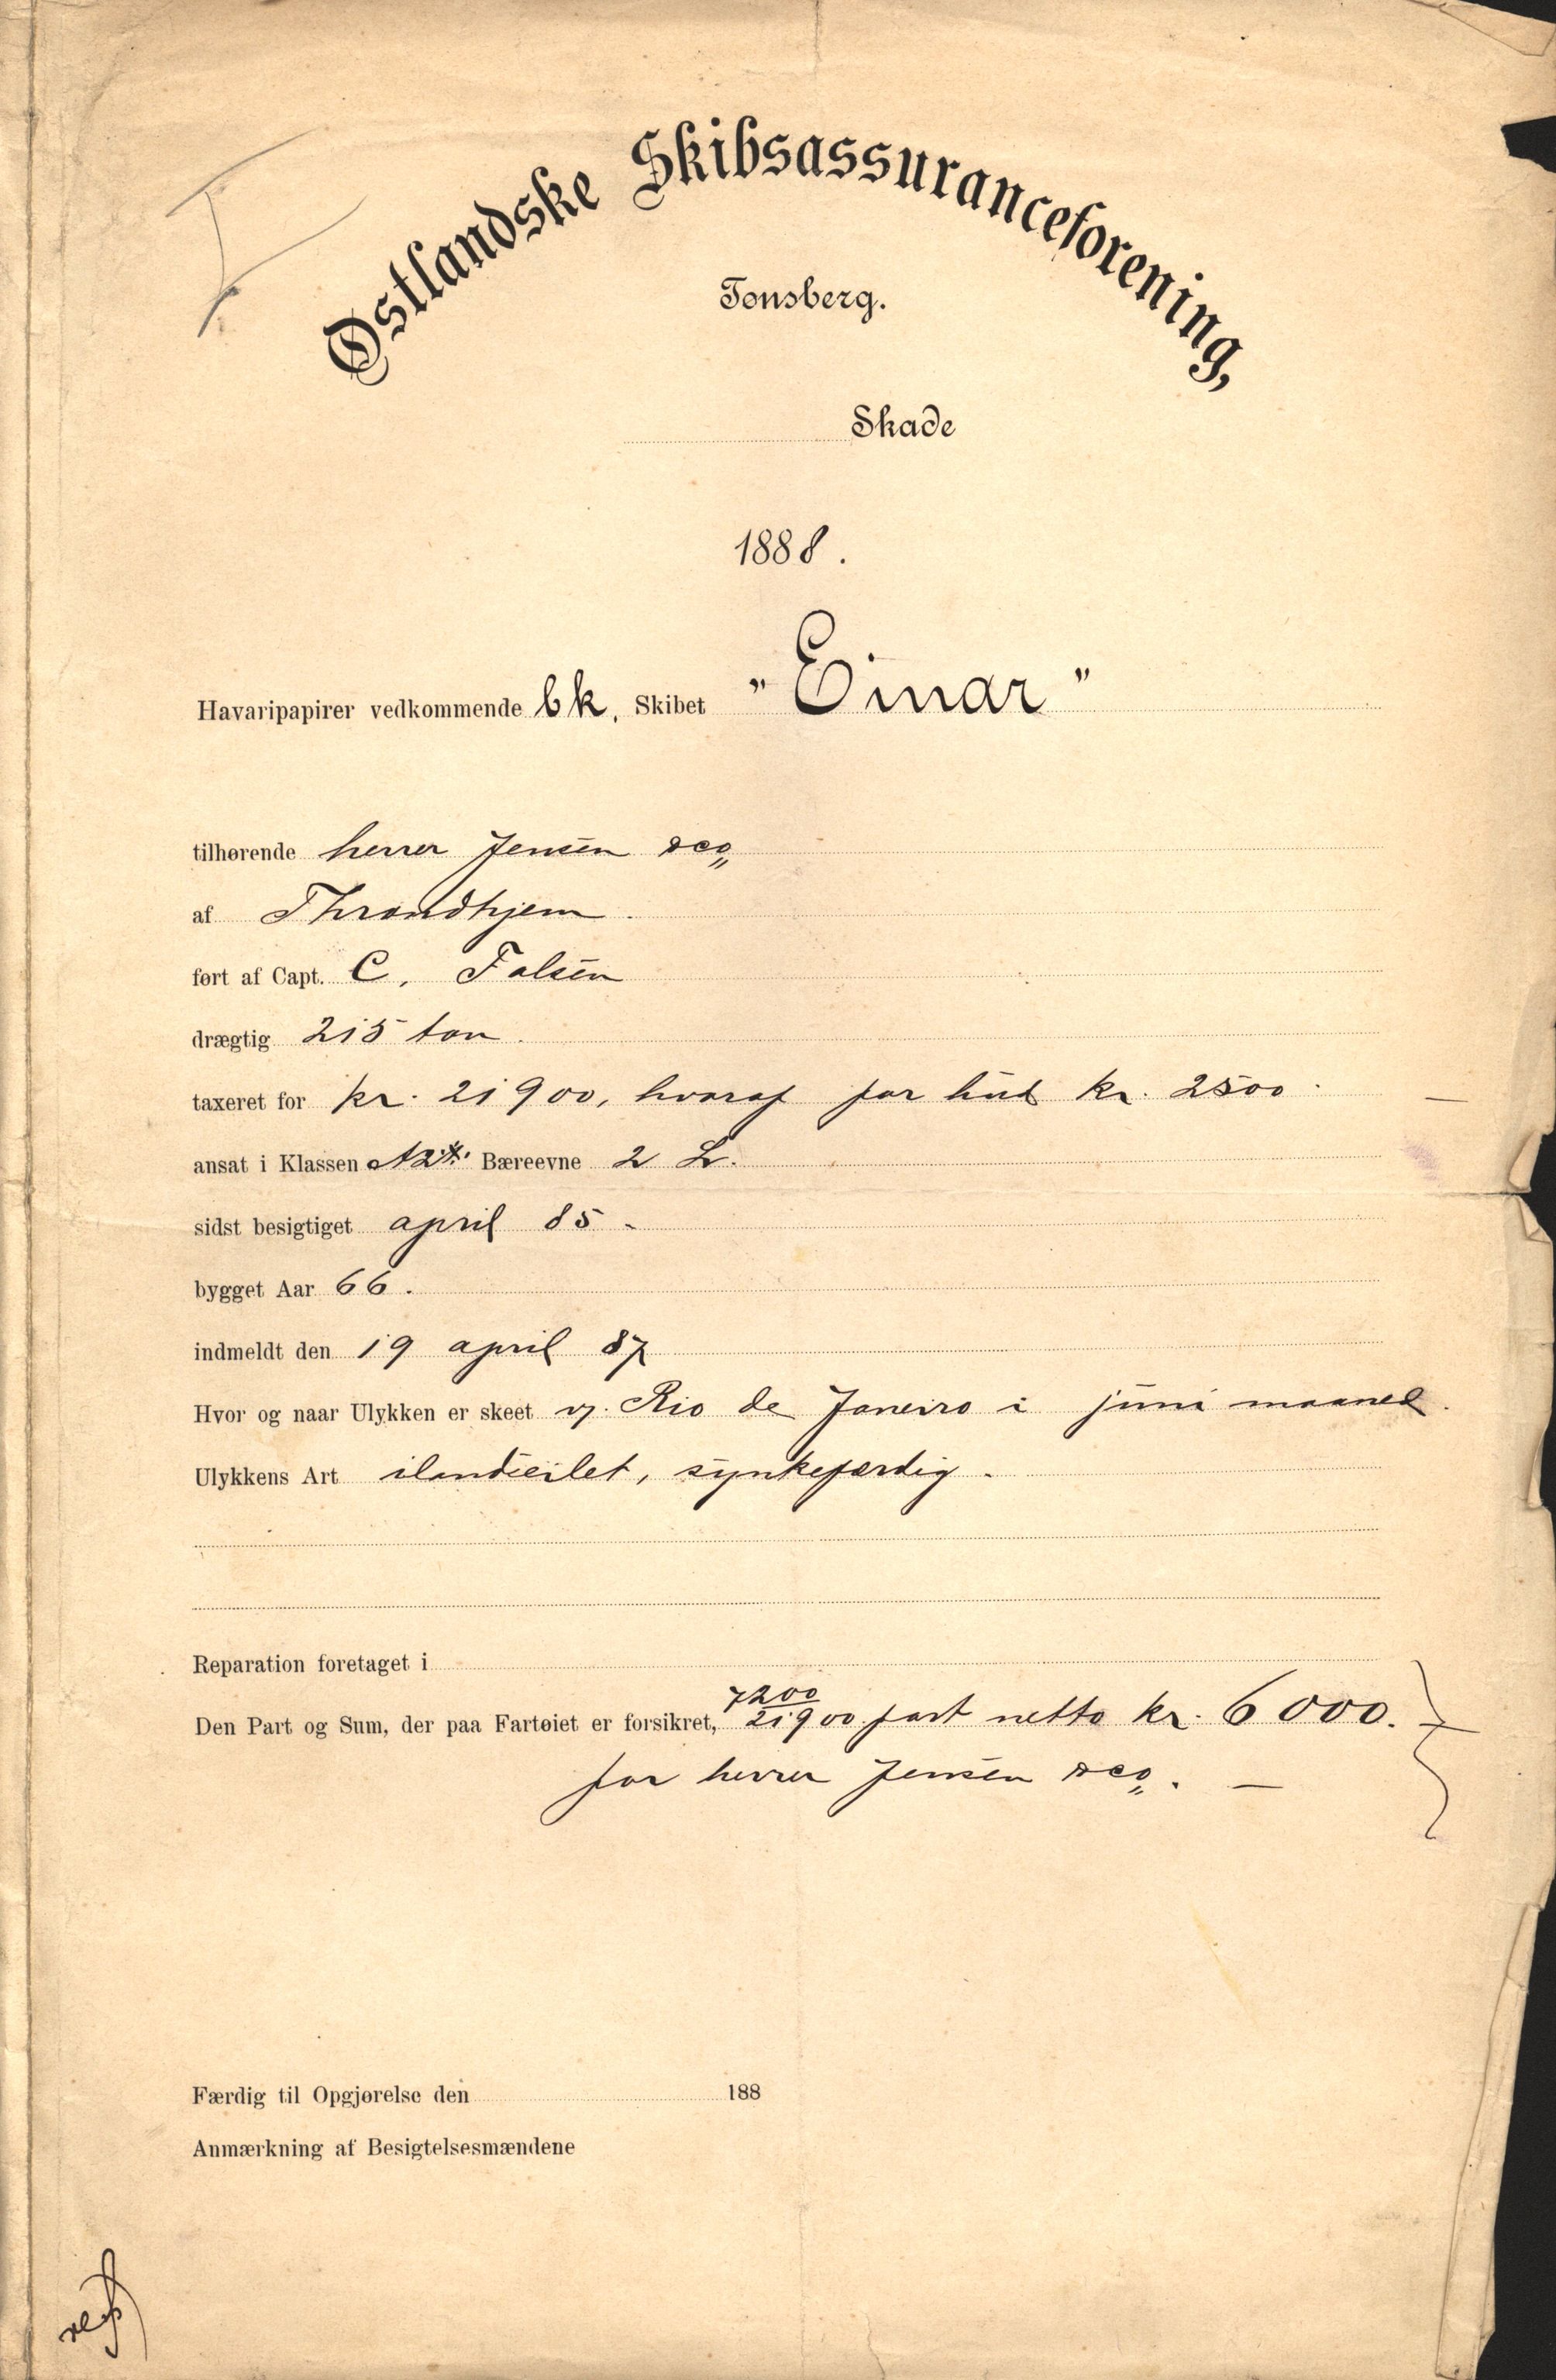 Østlandske Skibsassuranceforening,
Tønsberg.
Skade
1888.
Havaripapirer vedkommende bk. Skibet "Einar"
tilhørende herrer Jensen & Co
af Throndhjem.
ført af Capt. C. Falsen
drægtig 215 ton.
taxeret for kr. 21900, hvoraf for hud kr. 2500.
ansat i Klassen A2*. Bæreevne 2 L.
sidst besigtiget april 85 -
bygget Aar 66.
indmeldt den 19 april 87
Hvor og naar Ulykken er skeet v. Rio de Janeiro i juni maaned.
Ulykkens Art ilandseilet, synkefærdig.
Reparation foretaget i
Den Part og Sum, der paa Fartøiet er forsikret, 7200/21900 part netto kr. 6000.
for herrer Jensen & Co. —
Færdig til Opgjørelse den 188
Anmærkning af Besigtelsesmændene